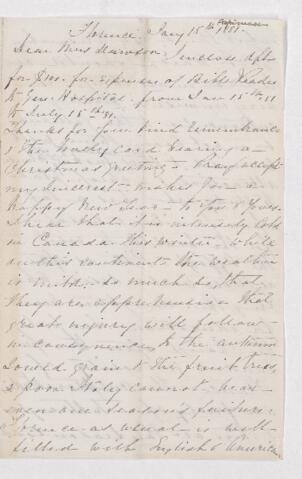 Florence. Jany 15th 1881.
Dear Miss Dawson I enclose dft
for $100. for expenses of Bible Reader
to Gen. Hospital. from Jan 15th 81
to July 15th 81.
Thanks for your kind remembrance
& the pretty card bearing a
Christmas greeting. Pray accept
my sincerest wishes for a
happy New Year to you & yours.
I hear that it is intensely cold
in Canada this winter, while
on this continent the weather
is mild, so much so, that
they are apprehensive that
great injury will follow
in consequence, to the autumn
sowed grain & the fruit trees,
& poor Italy cannot bear
even one season's failure.
Florence as usual is well
filled with English & American